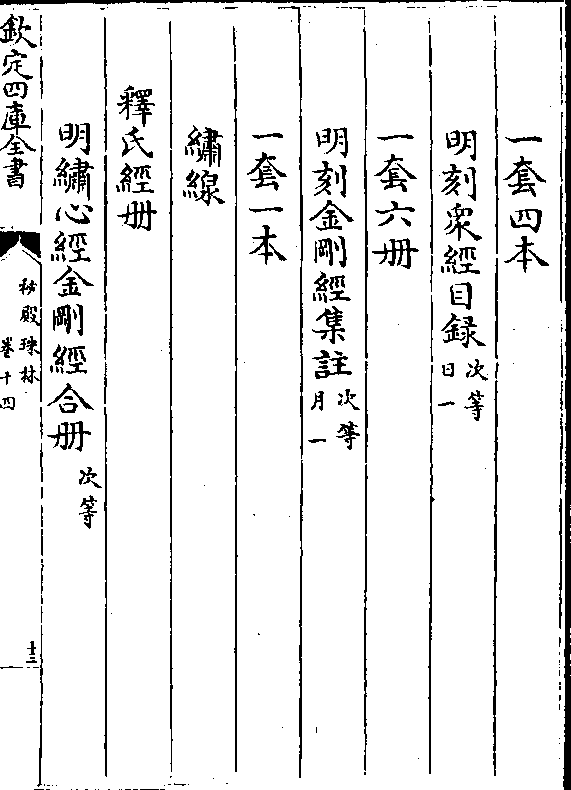 一套四本
明刻衆經目録次等日一
一套六册
明刻金剛經集註次等月一
一套一本
繡線
釋氏經册
明繡心經金剛經合册次等
欽定四庫全書
秘殿珠林
卷十四
十三